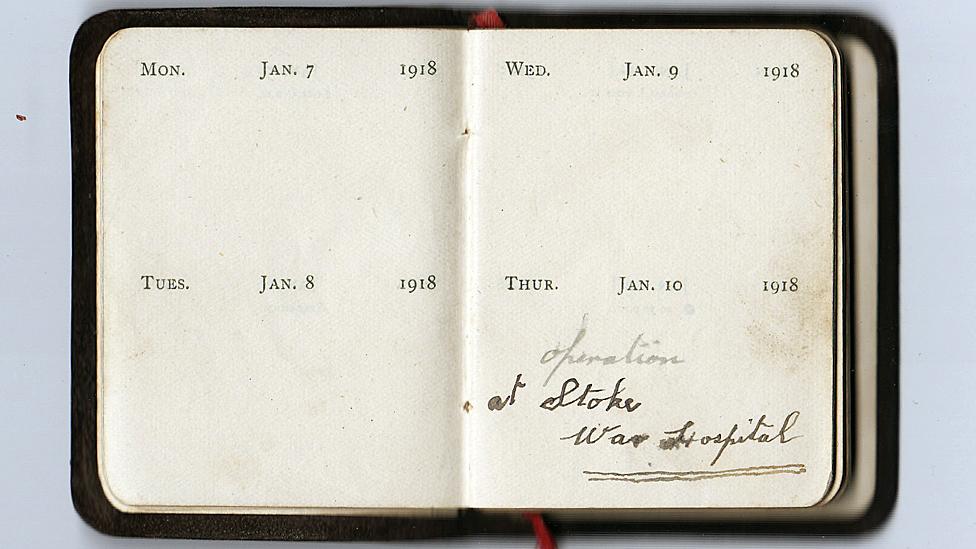 MON. JAN. 7 1918
TUES. JAN. 8 1918
WED. JAN. 9 1918
THUR. JAN. 10 1918
operation
at Stoke
War Hospital